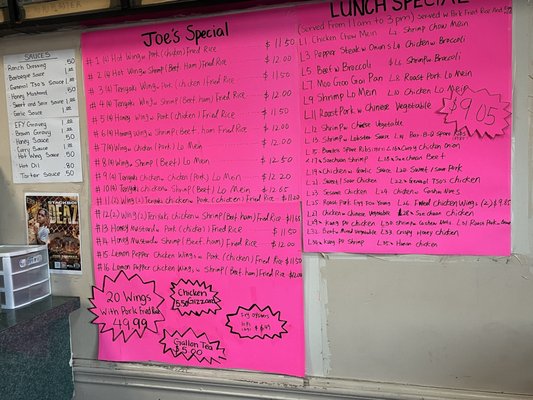 SAUCES
Ranch Dressing
Barbeque Sauce
General Tso's Sauce
Honey Mustard
Sweet and Sour Sauce
Garlic Sauce
EFY Gravy
Brown Gravy
Honey Sauce
Curry Sauce
Hot Wing Sauce
Hot Oil
Tartar Sauce
Joe's Special
#1 (4) Hot Wing w. Pork (Chicken) Fried Rice $11.50
#2 (4) Hot Wing w. Shrimp (Beef. Ham) Fried Rice $12.00
#3 (4) Teriyaki Wing w. Pork (chicken) Fried Rice $11.50
#4 (4) Teriyaki Wing w. Shrimp (Beef, ham) Fried Rice $12.00
#5 (4) Honey Wing w. Pork (chicken) Fried Rice $11.50
#6 (4) Honey Wing w. Shrimp (Beef. ham) Fried Rice $12.00
#7 (4) Wing w. Chicken (Pork) Lo Mein $12.00
#8 (4) Wing w. Shrimp (Beef) Lo Mein $12.50
#9 (4) Teriyaki Chicken w. Chicken (Pork) Lo Mein $12.20
#10 (4) Teriyaki chicken w. Shrimp (Beef) Lo Mein $12.65
#11 (2) Wing (2) Teriyaki chicken w. Pork (chicken) Fried Rice $11.20
#12 (2) Wing (2) Teriyaki chicken w. Shrimp (Beef. ham) Fried Rice
#13 Honey Mustard w. Pork (chicken) Fried Rice $11.50
#14 Honey Mustard w. Shrimp (Beef. ham) Fried Rice $12.00
#15 Lemon Pepper Chicken Wing w. Pork (chicken) Fried Rice $11.50
#16 Lemon Pepper chicken Wing w. Shrimp (Beef ham) Fried Rice $12.00
20 Wings
With Pork Fried Rice
49.99
Chicken
5.50 Gizzard
Gallon Tea
$5.00
$6.99
LUNCH SPECIAL
(Served From 11am to 3pm) served w. Pork Fried Rice And
L1 Chicken Chow Mein
L2 Shrimp Chow Mein
L3 Pepper Steak w. Onions
L4 Chicken w. Broccoli
L5 Beef w. Broccoli
L6 Shrimp w. Broccoli
L7 Moo Goo Gai Pan
L8 Roast Pork Lo Mein
L9 Shrimp Lo Mein
L10 Chicken Lo Mein
L11 Roast Pork w. Chinese Vegetable
$9.05
L12 Shrimp w. Chinese Vegetable
L13 Shrimp w. Lobster Sauce
L14 Bar-B-Q Spare
L15 Boneless Spare Ribs
L16 Curry Chicken Onion
L17 Szechuan Shrimp
L18 Szechuan Beef
L19 Chicken w. Garlic Sauce
L20 Sweet & Sour Pork
L21 Sweet & Sour Chicken
L22 General Tso's Chicken
L23 Sesame Chicken
L24 Chicken w. Cashew Nuts
L25 Roast Pork Egg Foo Young
L26 Fried Chicken Wing (2) $9.85
L27 Chicken w. Chinese Vegetable
L28 Szechuan Chicken
L29 Kung Po Chicken
L30 Shrimp w. Cashew Nuts
L31 Roast Pork w.
L32 Beef w. Mixed Vegetable
L33 Crispy Honey Chicken
L34 Kung Po Shrimp
L35 Hunan Chicken